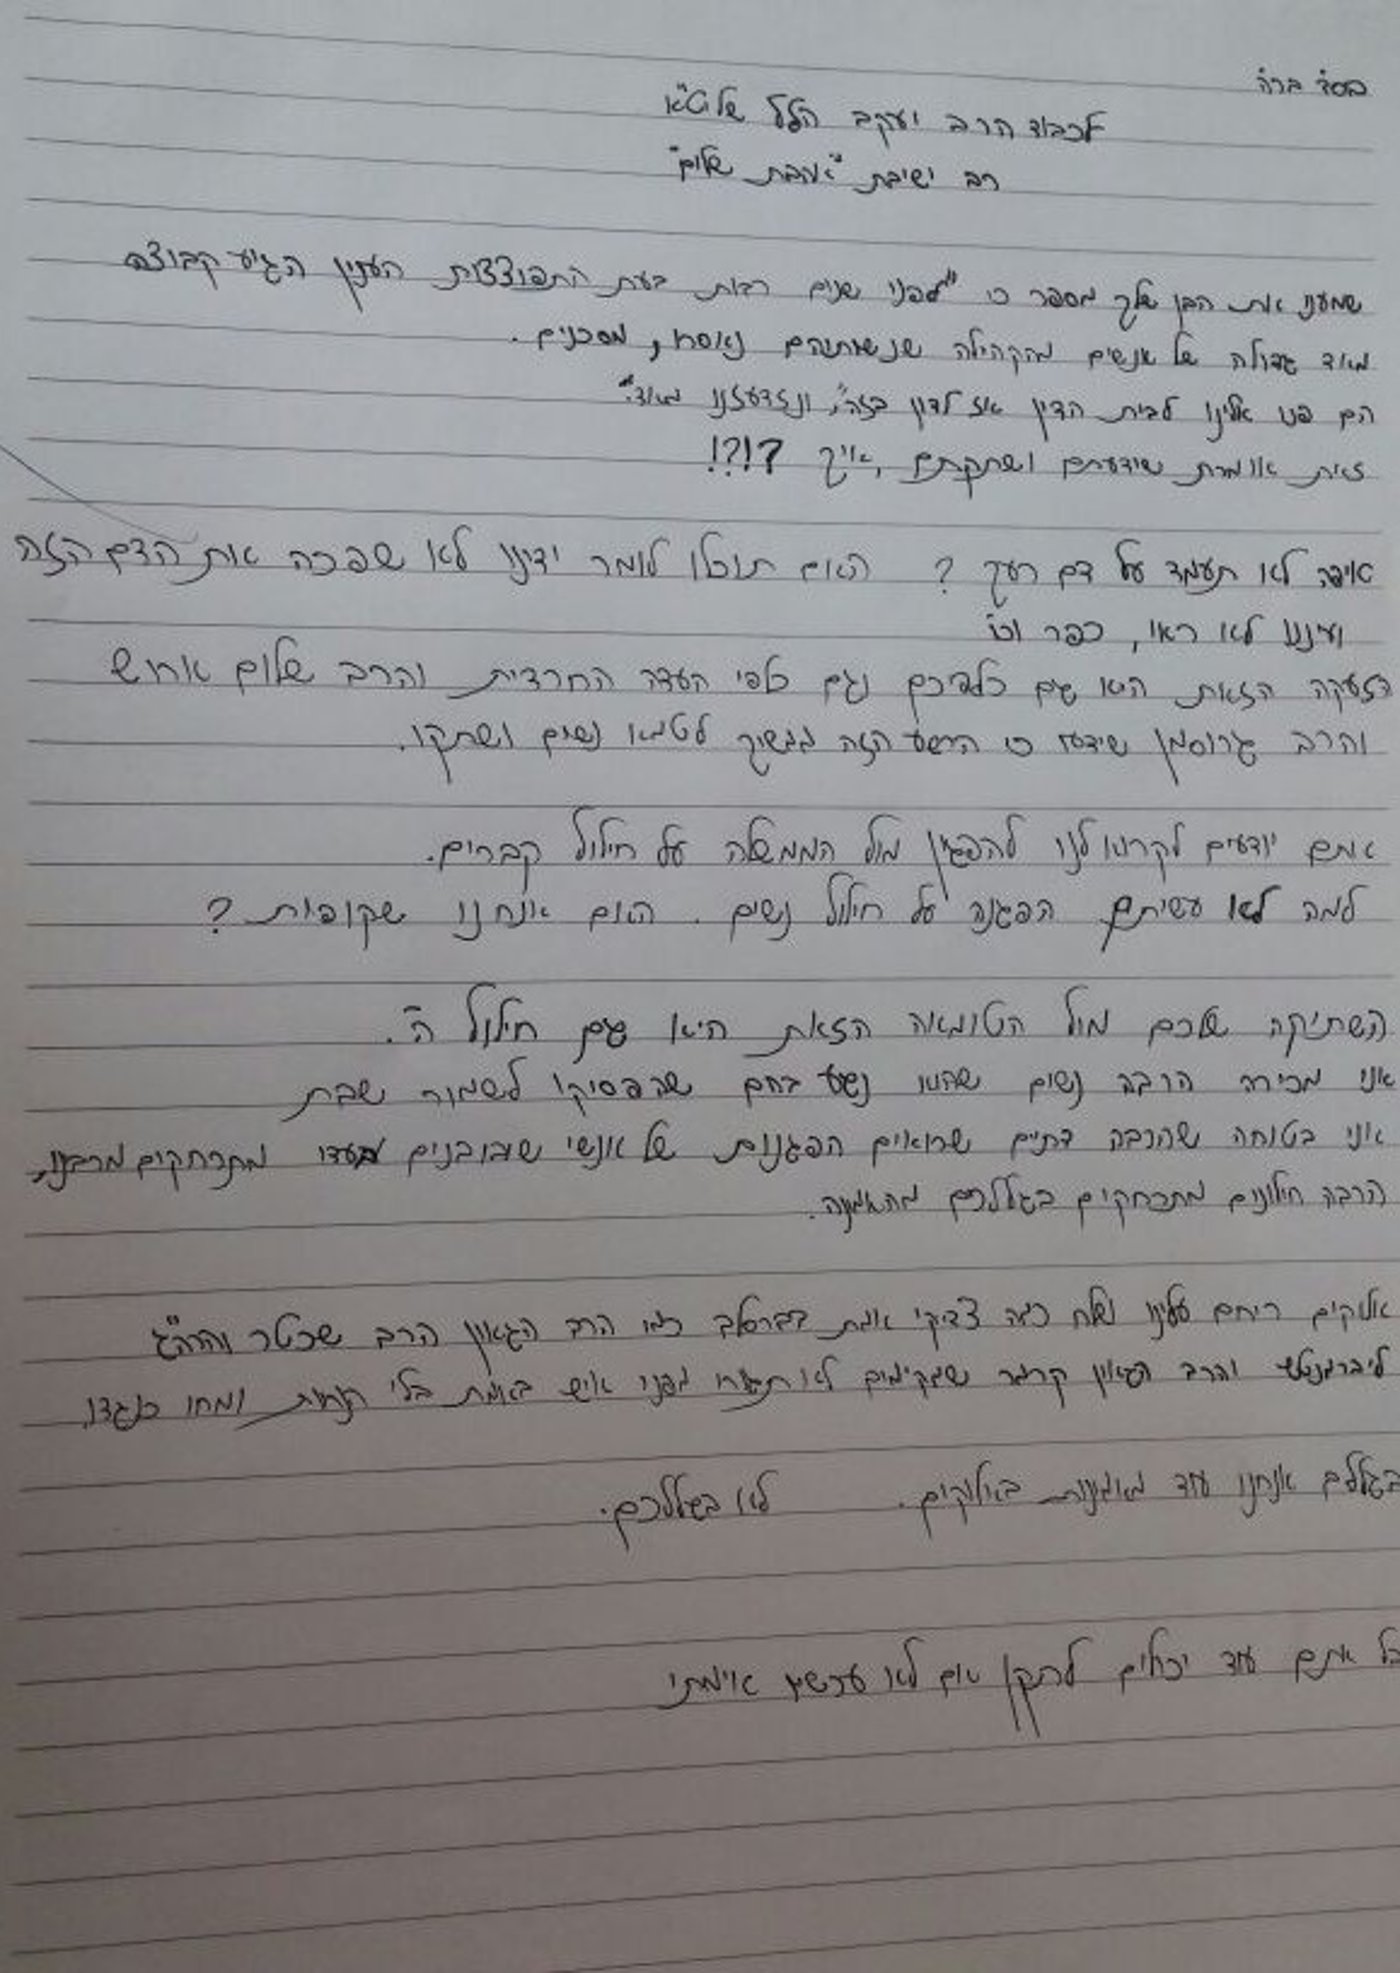 בסד ברה
לכבוד הרב יעקב הלל שליט"א
רב ישיבת "אהבת שלום"
שמענו את הבן שלך מספר כי "לפני שנים רבות בעת התפוצצות הענין הגיע קבוצה
מאוד גדולה של אנשים מהקהילה שנשותיהם נאסרו, מסכנים.
הם פנו אלינו לבית הדין אז לדון בזה", ונזדעזנו מאוד."
זאת אומרת שידעתם ושתקתם, איך ?!?!
איפה לא תעמד על דם רעך ? האם תוכלו לומר ידינו לא שפכה את הדם הזה
ועיננו לא ראו, כפר וכו
הזעקה הזאת היא גם כלפיכם וגם כלפי העדה החרדית והרב שלום ארוש
והרב גרוסמן שידעו כי הרשע הזה ממשיך לטמא נשים ושתקו.
אתם יודעים לקרוא לנו להפגין מול הממשלה על חילול קברים.
למה לא עשיתם הפגנה על חילול נשים. האם אנחנו שקופות ?
השתיקה שלכם מול הטומאה הזאת היא גם חילול ה'.
אני מכירה הרבה נשים שהוא פגע בהם שהפסיקו לשמור שבת
אני בטוחה שהרבה דתיים שרואים הפגנות של אנשי שובו בנים בעדו מתרחקים מרבנו,
הרבה חילונים מתרחקים בגללכם מהאמונה.
אלוקים ריחם עלינו ושלח כמה צדיקי אמת בברסלב כמו הרב הגאון הרב שכטר והרה"ג
ליברמנטש והרב הגאון קרמר שמקיימים לא תגורו מפני איש באמת בלי הנחות ומחו כנגדו.
בגללם אנחנו עוד מאמינות באלוקים. לא בגללכם.
אתם עוד יכולים לתקן אם לא עכשיו אימתי